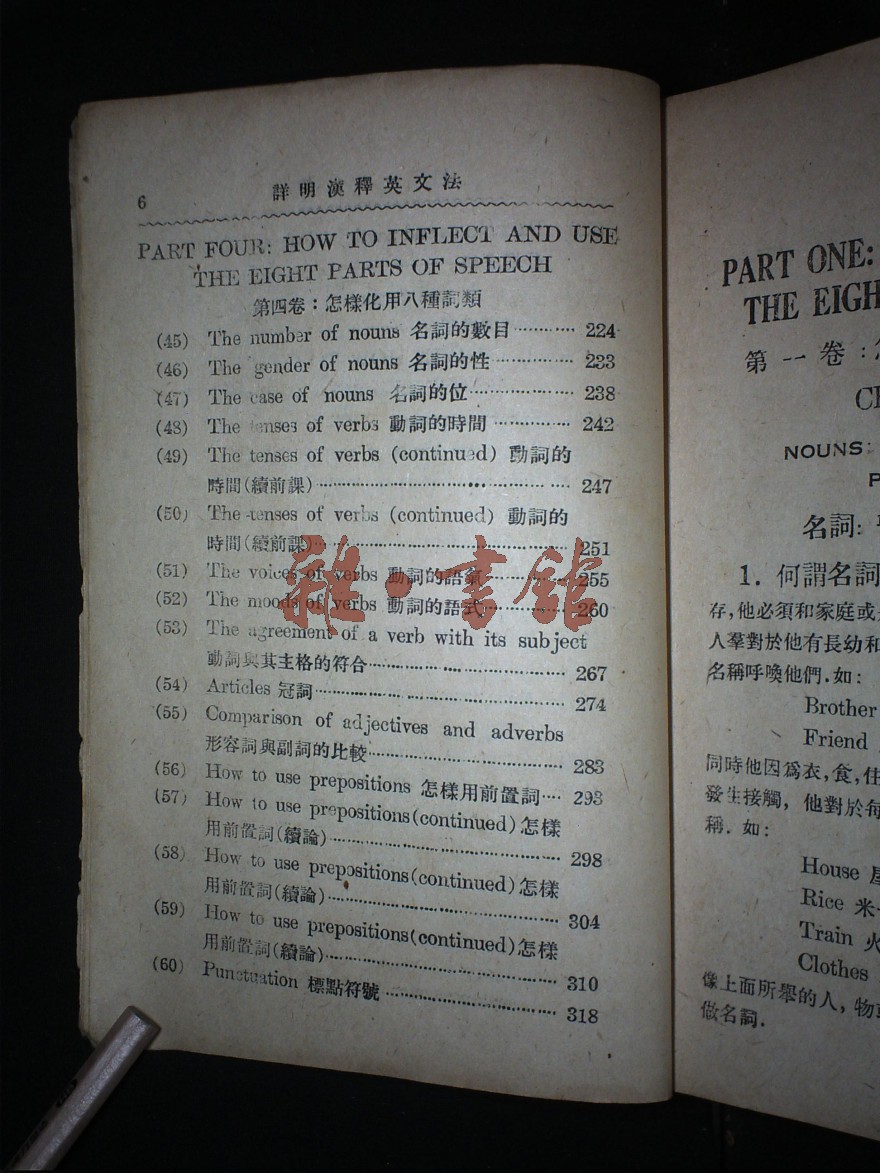 6 詳明漢釋英文法
PART FOUR: HOW TO INFLECT AND USE
THE EIGHT PARTS OF SPEECH
第四卷：怎樣化用八種詞類
(45) The number of nouns 名詞的數目············ 224
(46) The gender of nouns 名詞的性··············· 233
(47) The case of nouns 名詞的位··················· 238
(48) The tenses of verbs 動詞的時間 ··············· 242
(49) The tenses of verbs (continued) 動詞的
時間(續前課)·············································· 247
(50) The tenses of verbs (continued) 動詞的
時間(續前課)·············································· 251
(51) The voices of verbs 動詞的語氣··············· 255
(52) The moods of verbs 動詞的語式··············· 260
(53) The agreement of a verb with its subject
動詞與其主格的符合·································· 267
(54) Articles 冠詞············································ 274
(55) Comparison of adjectives and adverbs
形容詞與副詞的比較·································· 283
(56) How to use prepositions 怎樣用前置詞···· 293
(57) How to use prepositions(continued)怎樣
用前置詞(續論)·········································· 298
(58) How to use prepositions(continued)怎樣
用前置詞(續論)·········································· 304
(59) How to use prepositions(continued)怎樣
用前置詞(續論)·········································· 310
(60) Punctuation 標點符號 ······························ 318
雜·書館
PART ONE:
THE EIGH
第一卷：
NOUNS:
名詞:
1. 何謂名詞
存,他必須和家庭或
人羣對於他有長幼和
名稱呼喚他們.如:
Brother
Friend
同時他因爲衣,食,住
發生接觸, 他對於每
稱. 如:
House
Rice 米
Train 火
Clothes
像上面所舉的人, 物
做名詞.